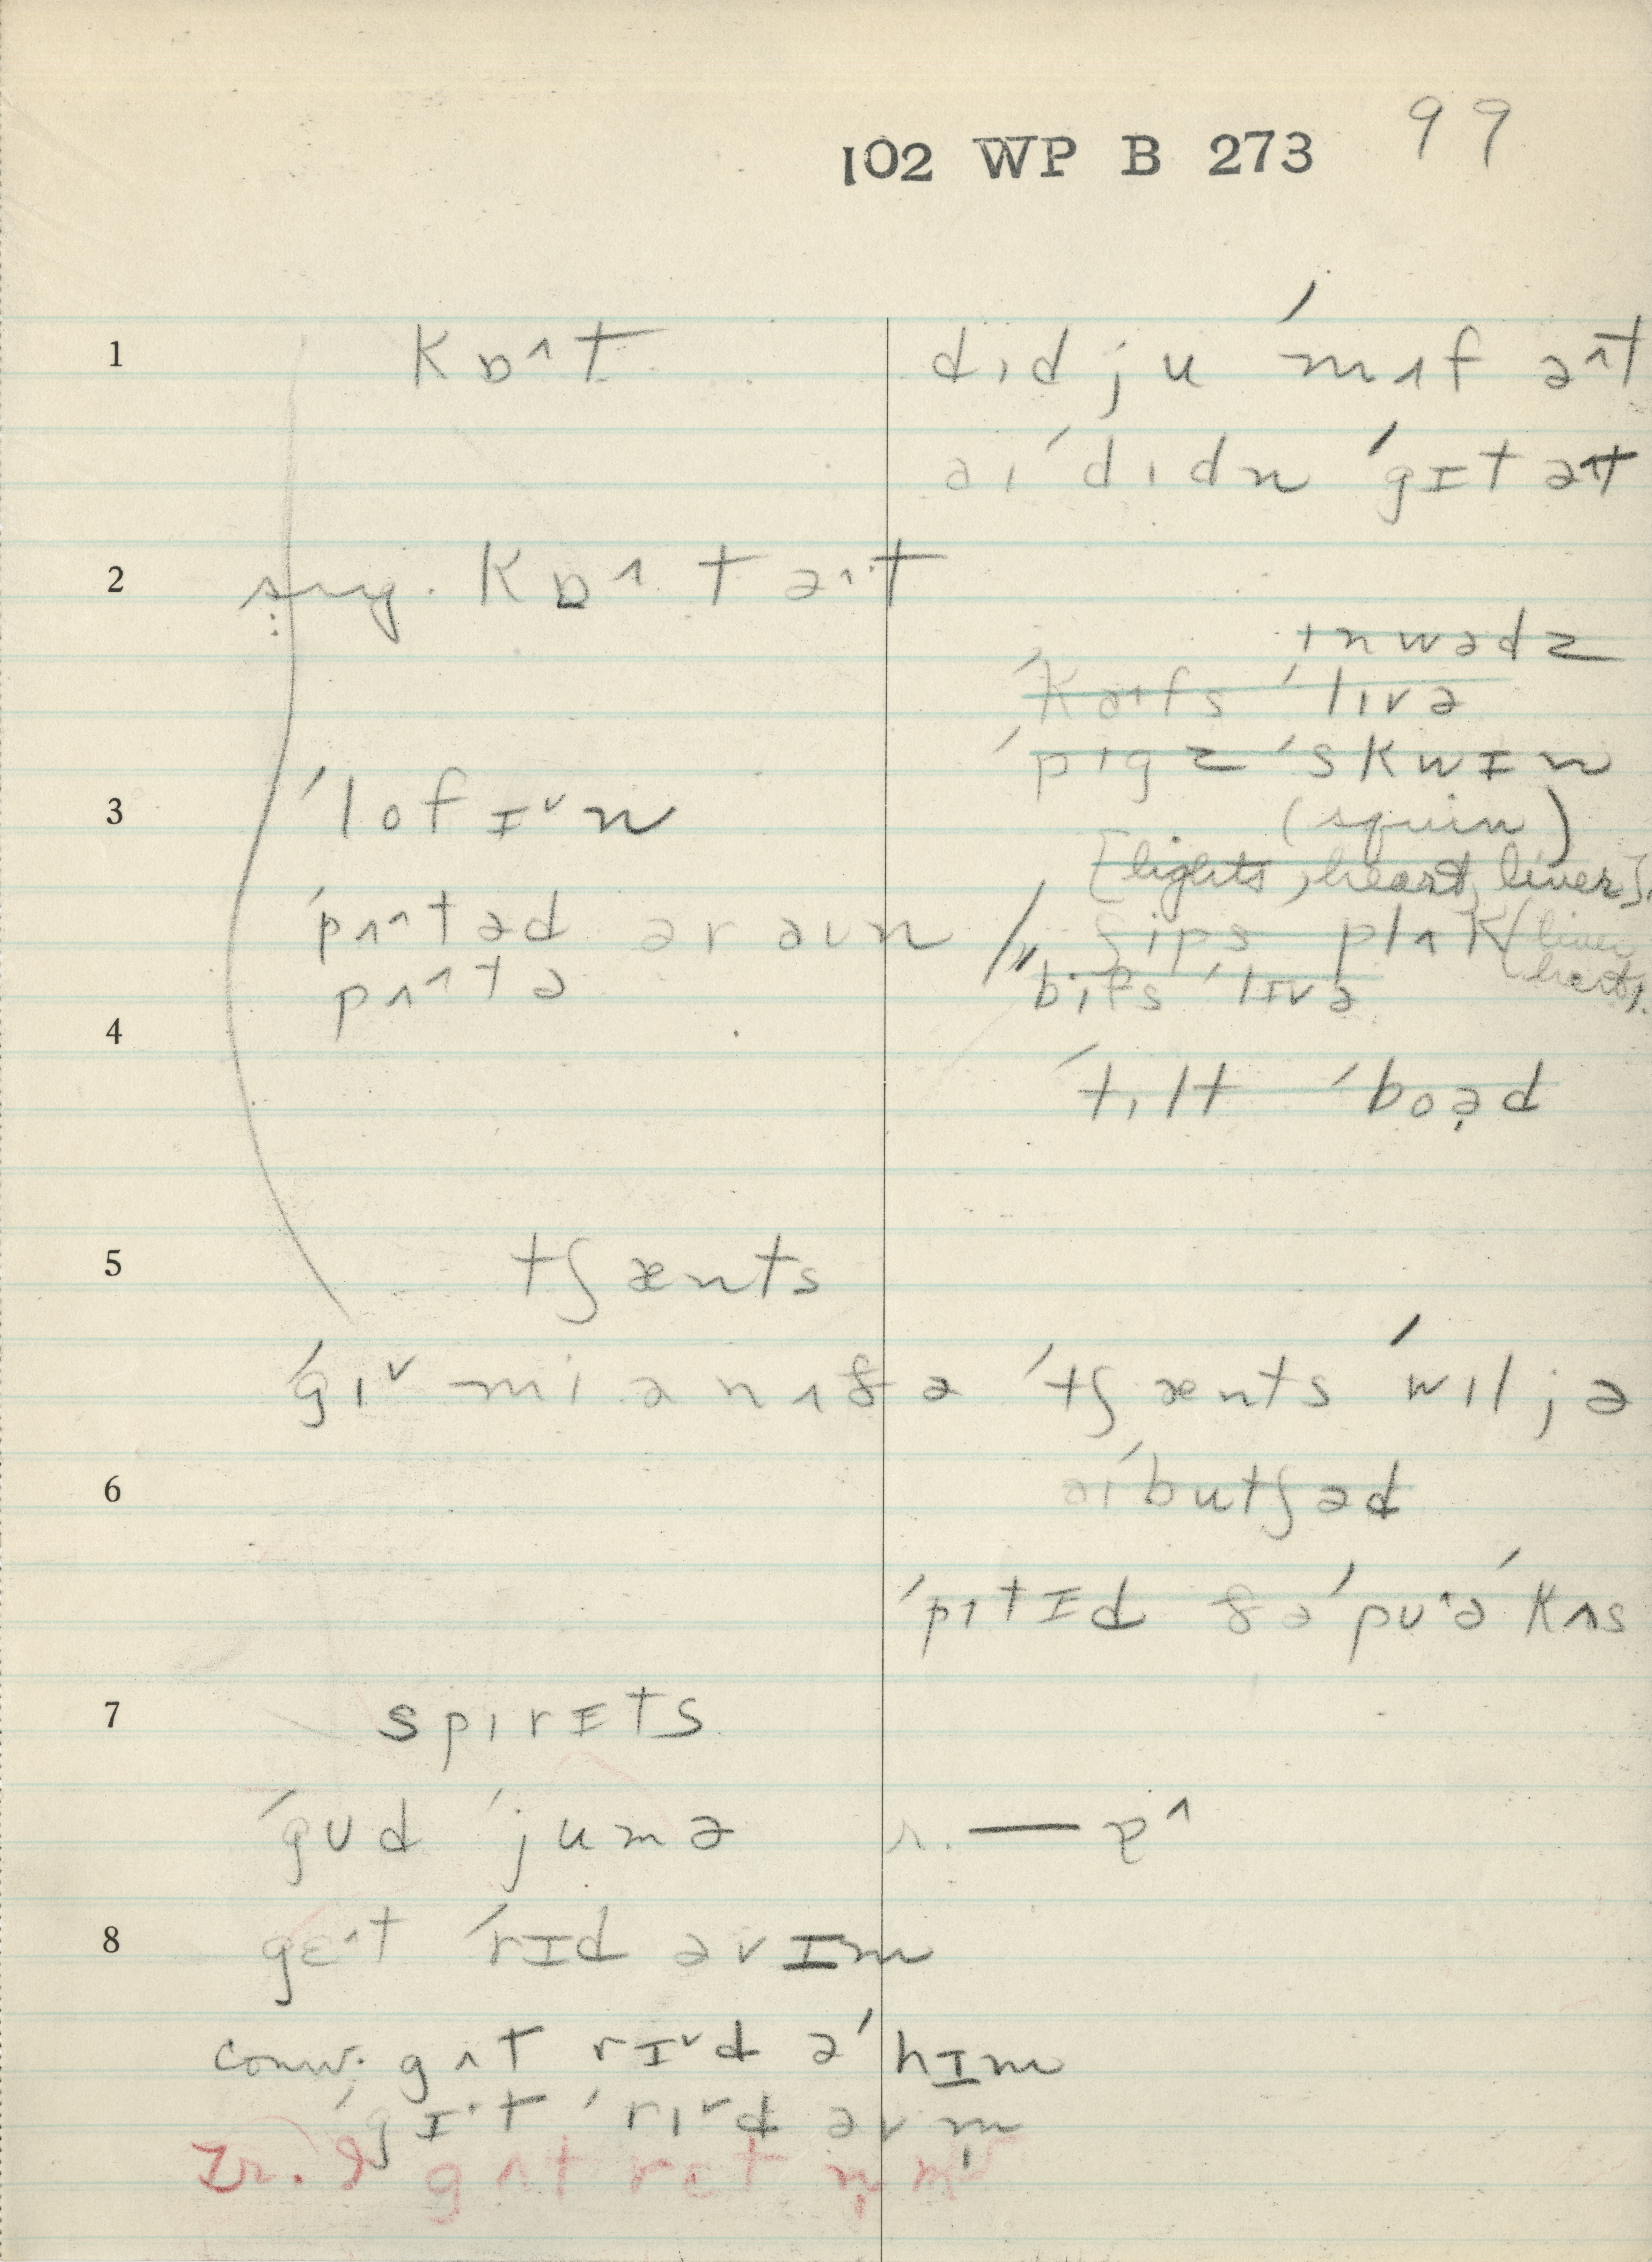 102 WP B 273 99
1 kɒ^t didju ˈmɪf ə^t
aɪ ˈdɪdn ˈgɪt ət
2 sug. kɒ^t ə^t
ɪnwədz
ˈkaɪfs ˈlɪvə
ˈpɪgz ˈskwɪn
3 ˈlofɪˇn (squin)
[lights, heart, liver]
ˈpʌ^təd əraʊn ʃips plʌk (liver
pʌ^tə bifs ˈlɪvə heart).
4
ˈtɪlt ˈboəd
5 tʃænts
ˈgɪˇ mi ənʌðə ˈtʃænts ˈwɪljə
6 aɪ ˈbutʃəd
ˈpɪtɪd ðə ˈpʊə ˈkʌs
7 spɪrɪts
ˈgʊd ˈjumə r. — p^
8 gɛ^t ˈrɪd əvɪm
conv. gʌt rɪˇd ə ˈhɪm
ˈgɪ^t ˈrɪˇd əv m̩